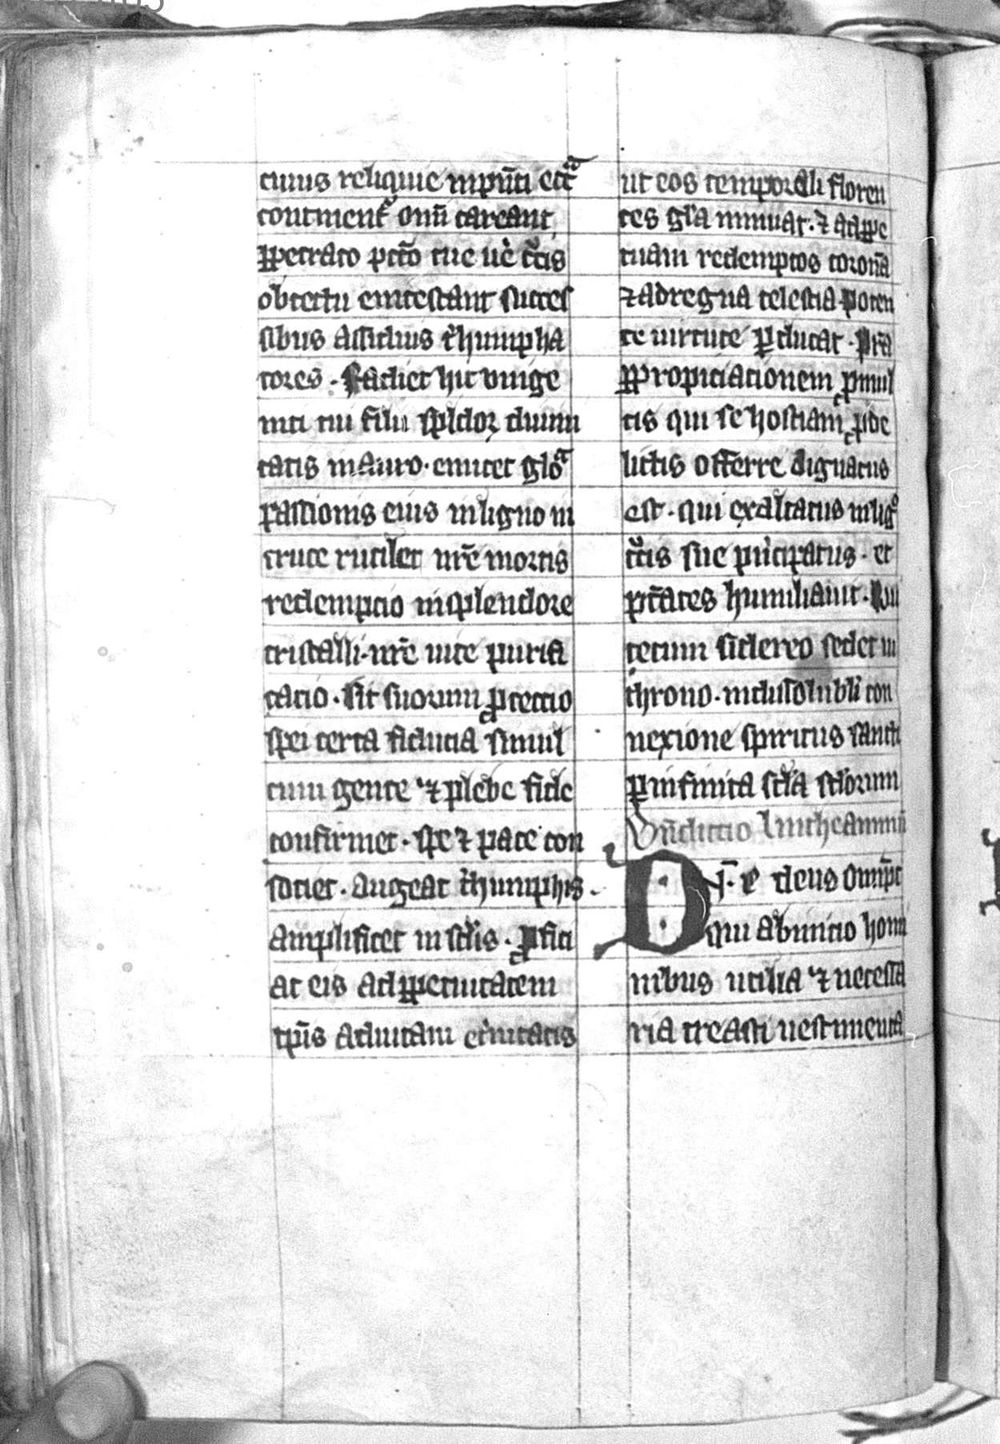 cuius reliquie inpn̄ti eccᵃ
continent᷑ onū careant
ꝑpetrato pctō tue uē cͥcis
obtectu enitescant succes
sibus assiduis tͥhumpha
tores. Radiet hic unige
niti tui filii spl̄dor diuini
tatis in auro. emicet glōᵃ
passionis eius in ligno in
cruce rutilet nr̄e mortis
redemptio in splendore
cristalli. nr̄e uite purifi
catio. Sit suorum ꝓtectio
spei certa fiducia simul
cum gente ⁊ plebe fide
confirmet. spe ⁊ pace con
societ. augeat tͥhumphis.
amplificet in scd̄is. ꝓfici
at eis ad ꝑpetuitatem
tp̄is ad uitam et̓nitatis
ut eos temporali floren
tes gl̄a muniat. ⁊ ad ꝑpe
tuam redemptos coronā
⁊ ad regna celestia poten
te uirtute ꝑducat. Per
ꝓpropiciationem ꝓ mul
tis qui se hostiam ꝓ de
lictis offerre dignatus
est. qui exaltatus in ligº
cͥcis sue pͥncipatus. et
ptātes humiliauit. Qui
tecum sidereo sedet in
throno. indissolubili con
nexione spiritus sancti
ꝑ infinita scl̄a scl̄orum
Bn̄dictio lintheaminū
D̄ne deus omīpt
qui ab inicio homi
nibus utilia ⁊ necessa
ria creasti uestimenta